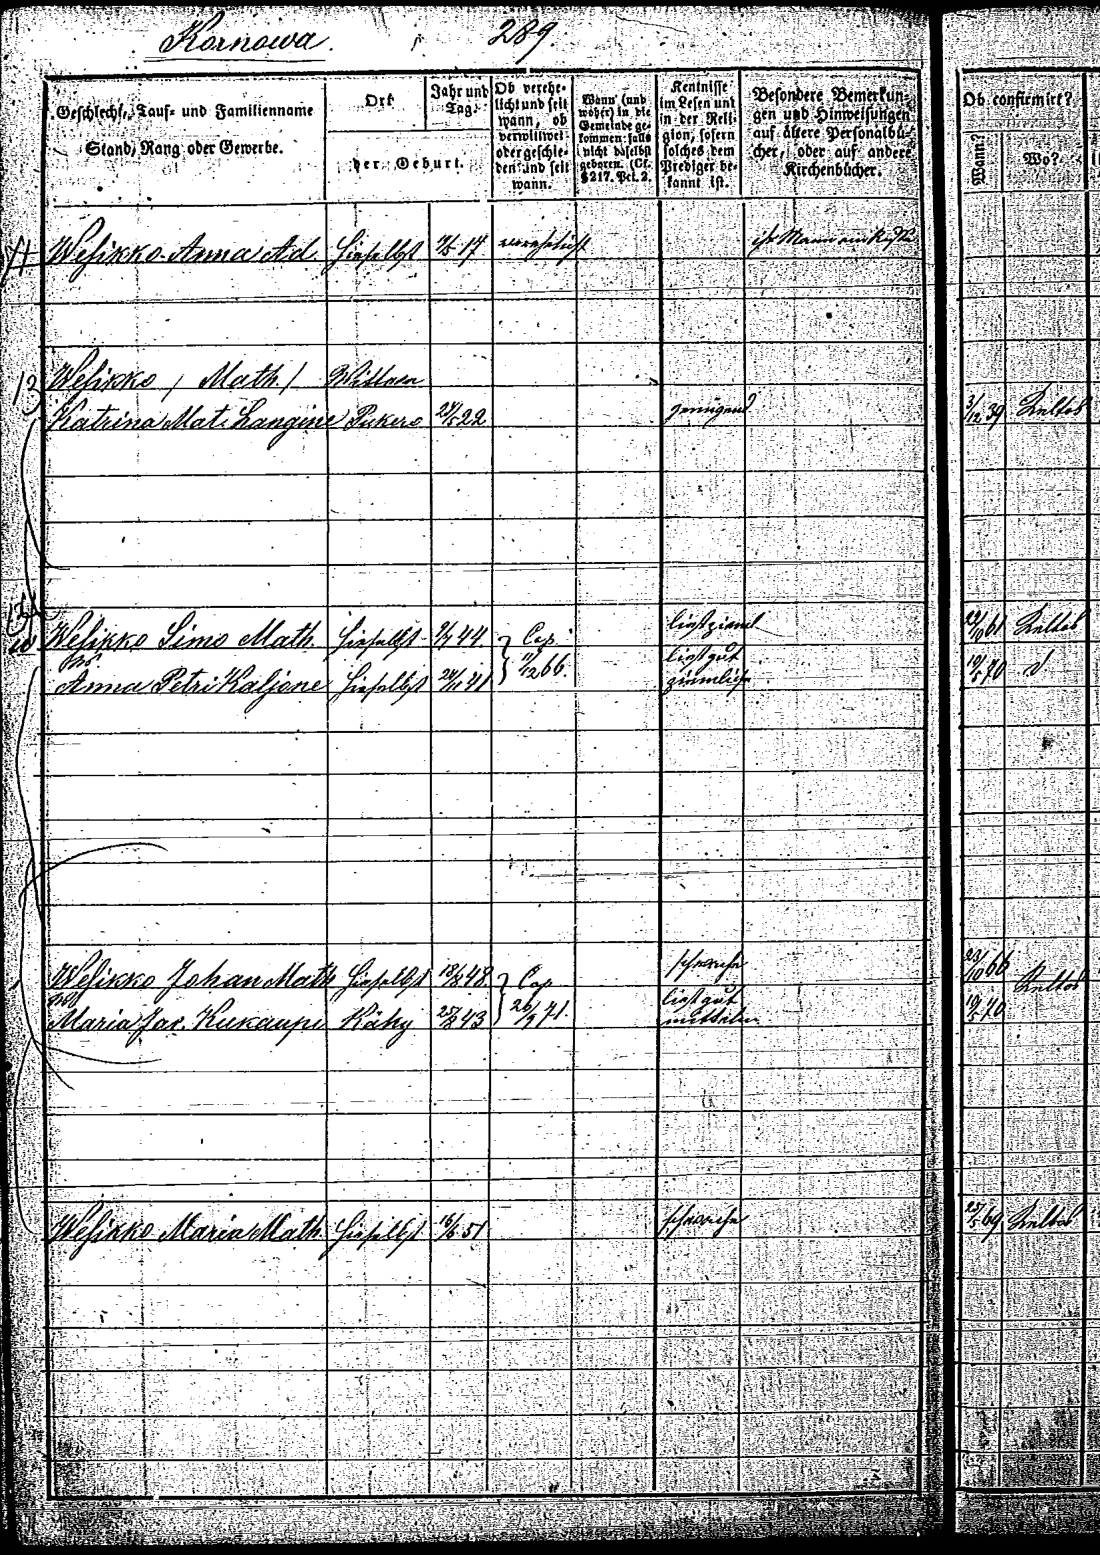 Kornowa. 289
Geschlechts-, Tauf- und Familienname
Stand, Rang oder Gewerbe.
Ort
Jahr und Tag.
der Geburt.
Ob verehe-
licht und seit
wann, ob
verwittwet
oder geschie-
den und seit
wann.
Wann (und
woher) in die
Gemeinde ge-
kommen falls
nicht daselbst
geboren. (Cf.
§ 217. Pct. 2.
Kentnisse
im Lesen und
in der Reli-
gion, sofern
solches dem
Prediger be-
kannt ist.
Besondere Bemerkun-
gen und Hinweisungen
auf ältere Personalbü-
cher, oder auf andere
Kirchenbücher.
Ob confirmirt?
Wann?
Wo?
Wesikko Anna Ad. hieselbst 17 verehelicht ihr Mann ein
13 Wesikko / Math / Wittwe
Katrina Mat. Langine Pukero 22 genügend 3/12 39 Keltos
Wesikko Simo Math. hieselbst 44. Cop. liest ziemel 61 Keltos
Anna Petri Kaljone hieselbst 24/11 41 11/12 66. liest gut ziemlich 70 d
Wesikko Johan Math hieselbst 48 Cop schwach 66 Keltos
Maria Jac. Kukaupi Käky 43 71. liest gut mittelm 70
Wesikko Maria Math. hieselbst 51 schwach 69 Keltos